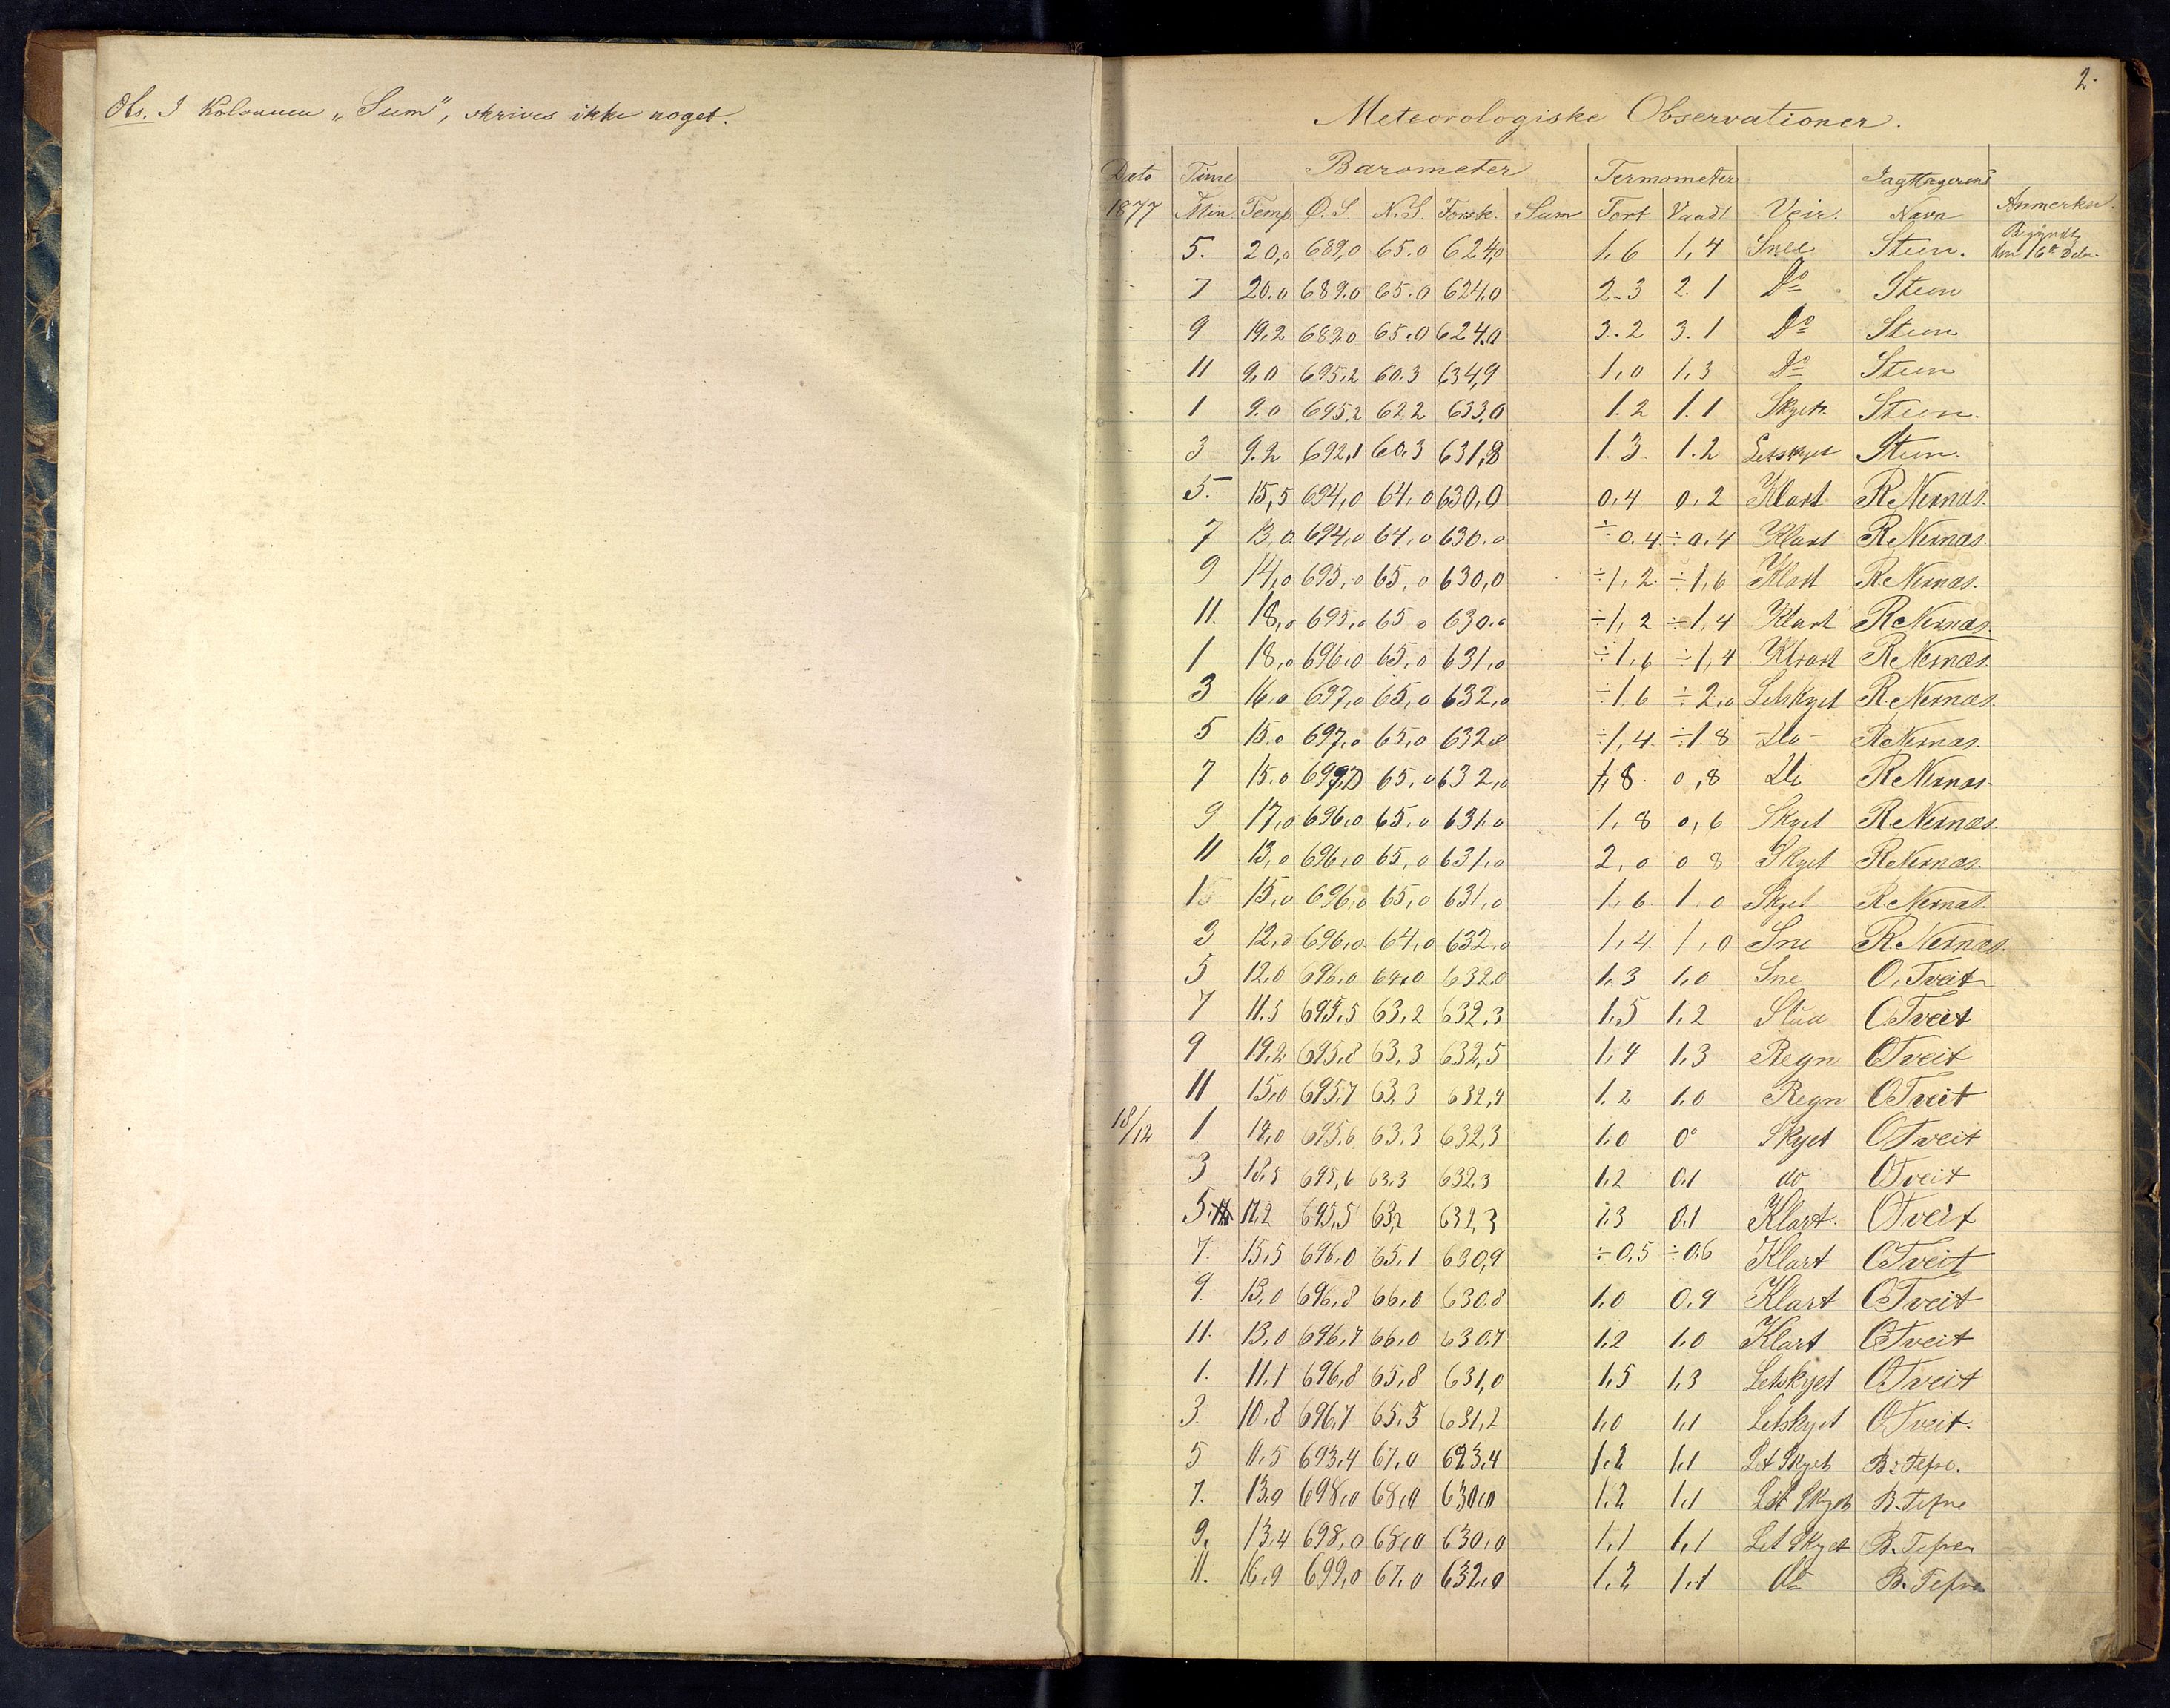 Obs. I Kolonnen „Sum", skrives ikke noget.
2.
Meteorologiske Observationer.
Dato Time Barometer Termometer Iagttagerens
1877 Min Temp. Ø.S. N.S. Forsk. Sum Tort Vaadt Veir. Navn Anmerkn.
5. 20,0 689,0 65.0 624,0 1,6 1,4 Snee Steen. Begyndt den 16de Debr.
7 20.0 689.0 65.0 624.0 2.3 2.1 Do Steen
9 19,2 689,0 65.0 624.0 3.2 3.1 Do Steen
11 9,0 695,2 60.3 634,9 1,0 1,3 Do Steen
1 9.0 695,2 62 2 633,0 1.2 1.1 Skyet. Steen.
3 9.2 692,1 60,3 631,8 1.3 1.2 Letskyet Steen.
5. 15,5 694,0 64,0 630,0 0,4 0,2 Klart R. Nernæs.
7 13,0 694,0 64,0 630,0 ÷0.4 ÷0,4 Klart R. Nernæs.
9 14,0 695,0 65,0 630,0 ÷1,2 ÷1,6 Klart R. Nernæs.
11. 18,0 695,0 65 0 630,0 ÷1,2 ÷1,4 Klart R. Nernæs.
1 18,0 696,0 65,0 631,0 ÷1,6 ÷1,4 Klart R. Nernæs.
3 16,0 697,0 65,0 632,0 ÷1,6 ÷2,0 Letskyet R. Nernæs.
5 15.0 697,0 65,0 632,0 ÷1,4 ÷1 8 Do R. Nernæs.
7 15.0 697,0 65,0 632,0 1,8 0,8 Do R. Nernæs
9 17,0 696,0 65,0 631,0 1,8 0,6 Skyet R. Nernæs.
11 13,0 696,0 65,0 631,0 2,0 0 8 Skyet R. Nernæs.
1 15,0 696,0 65,0 631,0 1,6 1,0 Skyet R. Nernæs.
3 12,0 696,0 64,0 632,0 1,4 1,0 Sne R. Nernæs.
5 12,0 696,0 64,0 632,0 1,3 1,0 Sne O. Tveit
7 11.5 695,5 63,2 632,3 1,5 1,2 Slud O Tveit
9 19,2 695,8 63,3 632,5 1,4 1,3 Regn O Tveit
11 15,0 695,7 63,3 632,4 1,2 1,0 Regn O Tveit
18/12 1 14,0 695,6 63,3 632,3 1,0 0° Skyet O Tveit
3 18,5 695,6 63,3 632,3 1,2 0,1 do O Tveit
5. 11,2 695,5 63,2 632,3 1,3 0,1 Klart. O Tveit
7. 15,5 696,0 65,1 630,9 ÷0,5 ÷0,6 Klart O Tveit
9. 13,0 696,8 66,0 630,8 1,0 0,9 Klart O Tveit
11. 13,0 696,7 66,0 630,7 1,2 1,0 Klart O Tveit
1. 11,1 696,8 65,8 631,0 1,5 1,3 Letskyet O Tveit
3 10,8 696,7 65,5 631,2 1,0 1,1 Letskyet O Tveit.
5 11,5 693,4 67,0 623,4 1,2 1,1 Let Skyet B. Tefre.
7. 13,9 698,0 68,0 630,0 1,2 1,1 Let Skyet B. Tefre
9. 13,4 698,0 68,0 630,0 1,1 1,1 Let Skyet B. Tefre
11. 16,9 699,0 67,0 632,0 1,2 1,1 Do B. Tefre